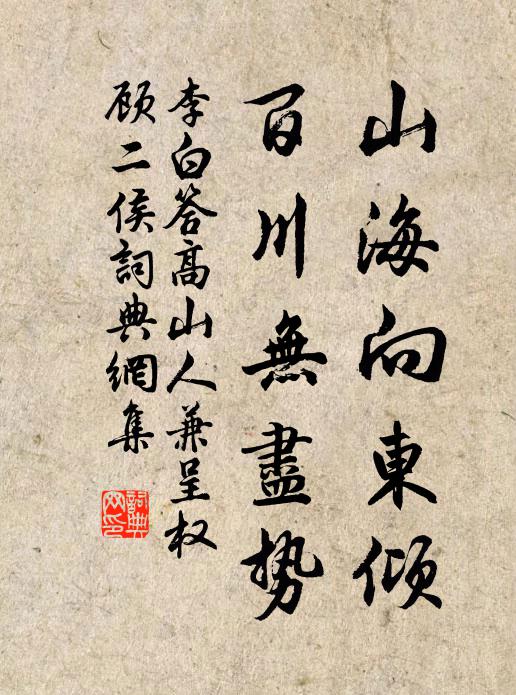 山海向東傾
百川無盡勢
李白答高山人兼呈权
顾二侯詞典網集
詞典网印